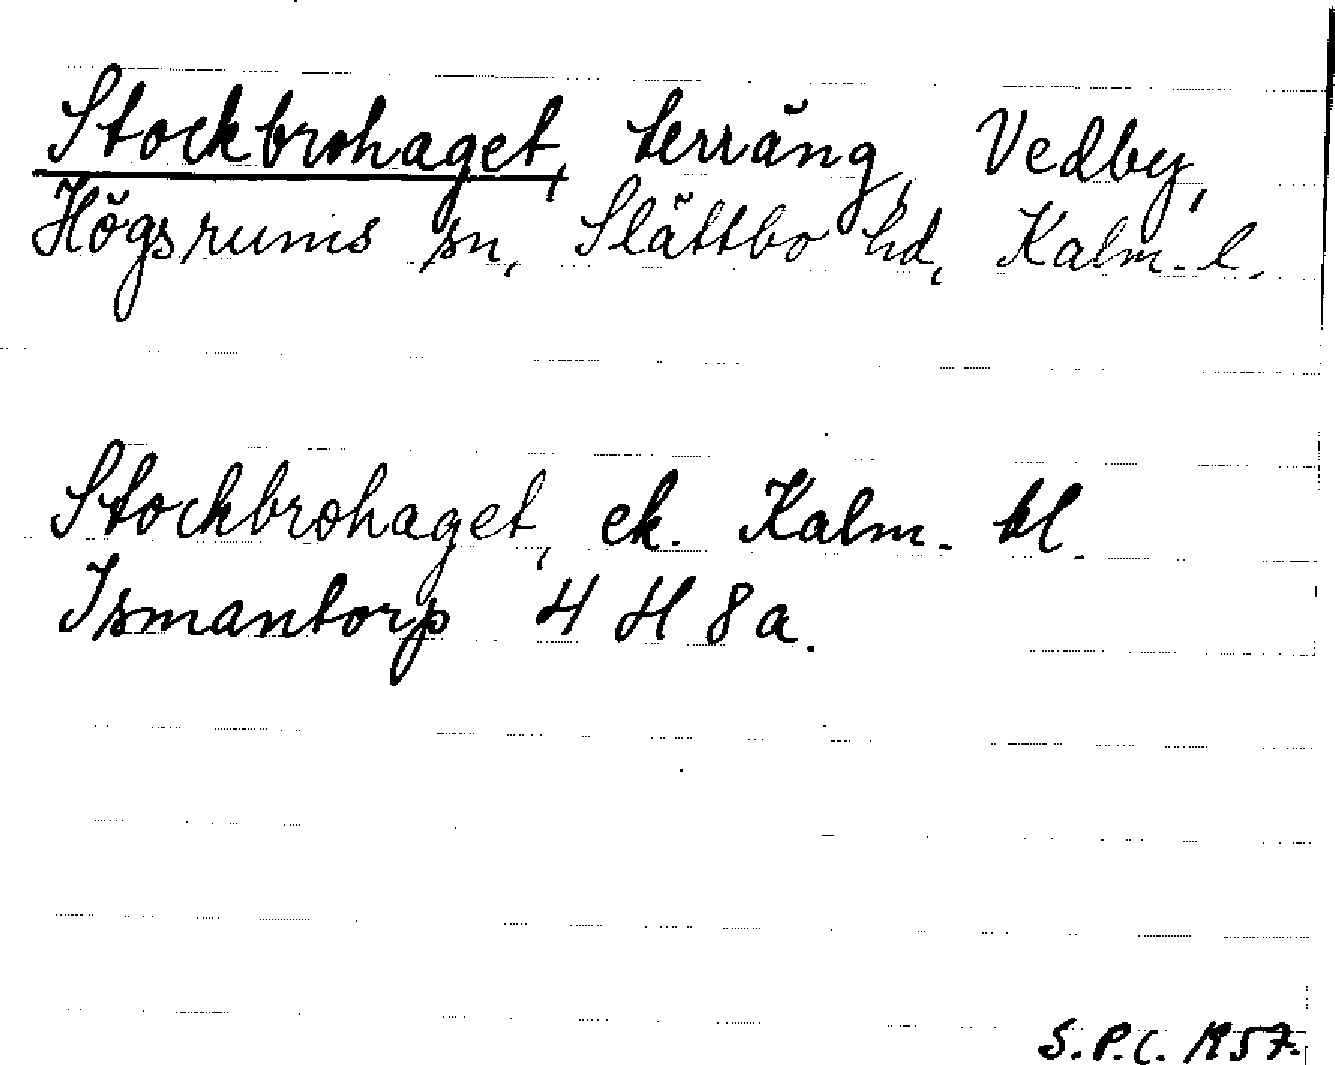 Stockbrohaget, terräng, Vedby,
Högsrums sn, Slättbo hd, Kalm. l.
Stockbrohaget, ek. Kalm. bl.
Ismantorp 4 H 8 a.
S.P.C. 1957.